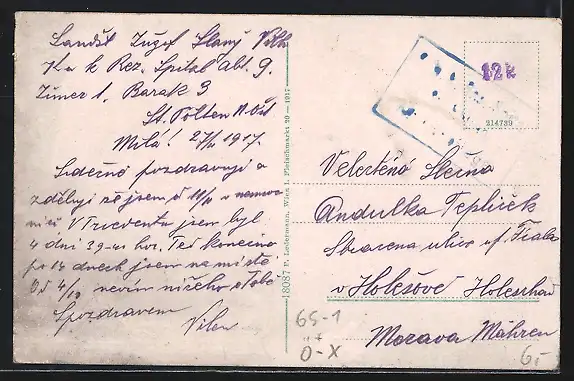 Landst Jozef Slaný Vilh
K u k Rez. Spital Abt. 9.
Zimer 1. Barak 3
St. Pölten N. Öst
Milá! 27/10 1917.
Srdečně pozdravuji a
zděluji že jsem od 11/10 v nemoc
nici V Tridentu jsem byl
4 dni 39-40 hor. Teď konečně
po 14 dnech jsem na místě
Od 4/10 nevím ničeho o Tobě
S pozdravem
Vilém
18087 P. Ledermann, Wien I. Fleischmarkt 20 – 1917
12k
214739
Velectěná Slečna
Andulka Teplíček
Ztracena ulice
v Holešově Holeschau
Morava Mähren
6S-1
O-X
6.-